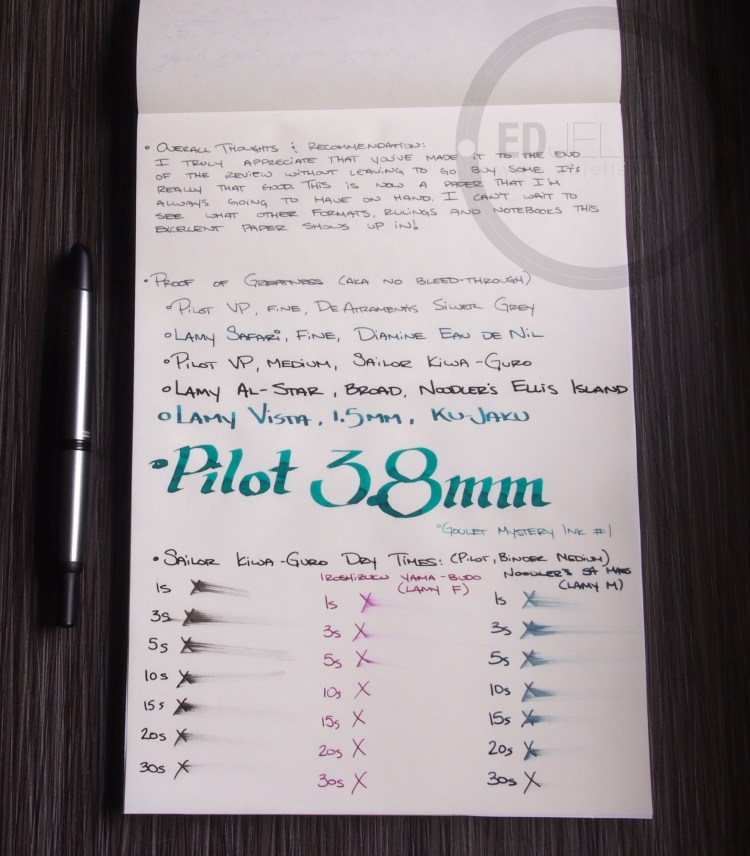 • Overall Thoughts & Recommendation:
I truly appreciate that you've made it to the end
of the review without leaving to go buy some. It's
really that good. This is now a paper that I'm
always going to have on hand. I can't wait to
see what other formats, rulings and notebooks this
excellent paper shows up in!
• Proof of Greatness (aka no bleed-through)
• Pilot VP, Fine, DeAtramentis Silver Grey
• Lamy Safari, Fine, Diamine Eau de Nil
• Pilot VP, Medium, Sailor Kiwa-Guro
• Lamy Al-Star, Broad, Noodler's Ellis Island
• Lamy Vista, 1.5mm, Ku-Jaku
• Pilot 3.8mm
• Goulet Mystery Ink #1
• Sailor Kiwa-Guro Dry Times: (Pilot, Binder Medium)
1s X
3s X
5s X
10s X
15s X
20s X
30s X
Iroshizuku Yama-Budo
(Lamy F)
1s X
3s X
5s X
10s X
15s X
20s X
30s X
Noodler's
(Lamy M)
1s X
3s X
5s X
10s X
15s X
20s X
30s X
ED